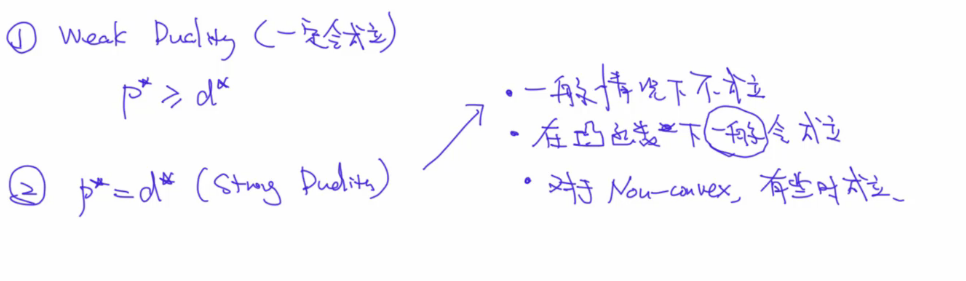 ① Weak Duality (一定会成立)
p* ≥ d*
② p* = d* (Strong Duality)
• 一般情况下不成立
• 在凸函数下一般会成立
• 对于 Non-convex, 有些时成立、